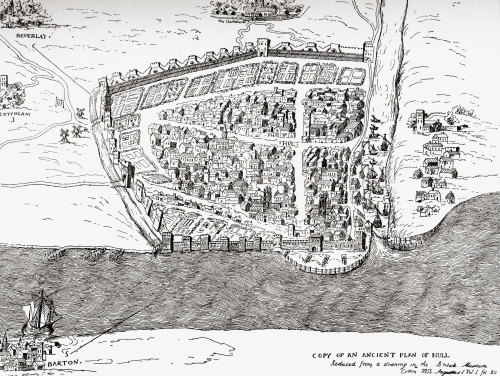 BEVERLAY.
COTTNGAM
HULL
BARTON.
COPY OF AN ANCIENT PLAN OF HULL
Reduced from a drawing in the British Museum
Cotton MSS. Augustus I Vol I fol 80